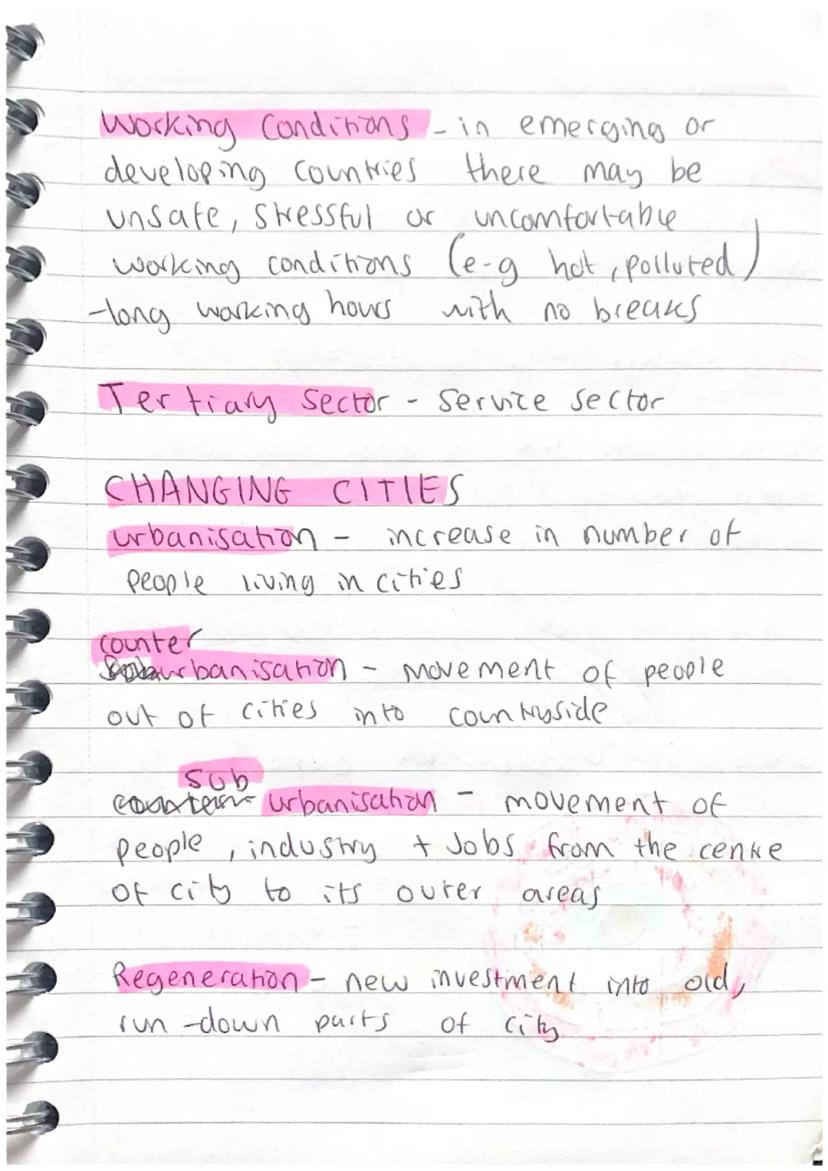 Working Conditions - in emerging or
developing countries there may be
unsafe, stressful or uncomfortable
working conditions (e-g hot, polluted)
-long working hours with no breaks
Tertiary Sector - Service sector
CHANGING CITIES
urbanisation - increase in number of
people living in cities
counter
urbanisation - movement of people
out of cities into countryside
Sub
urbanisation - movement of
people, industry + Jobs from the centre
of city to its outer areas
Regeneration - new investment into old,
run-down parts of city